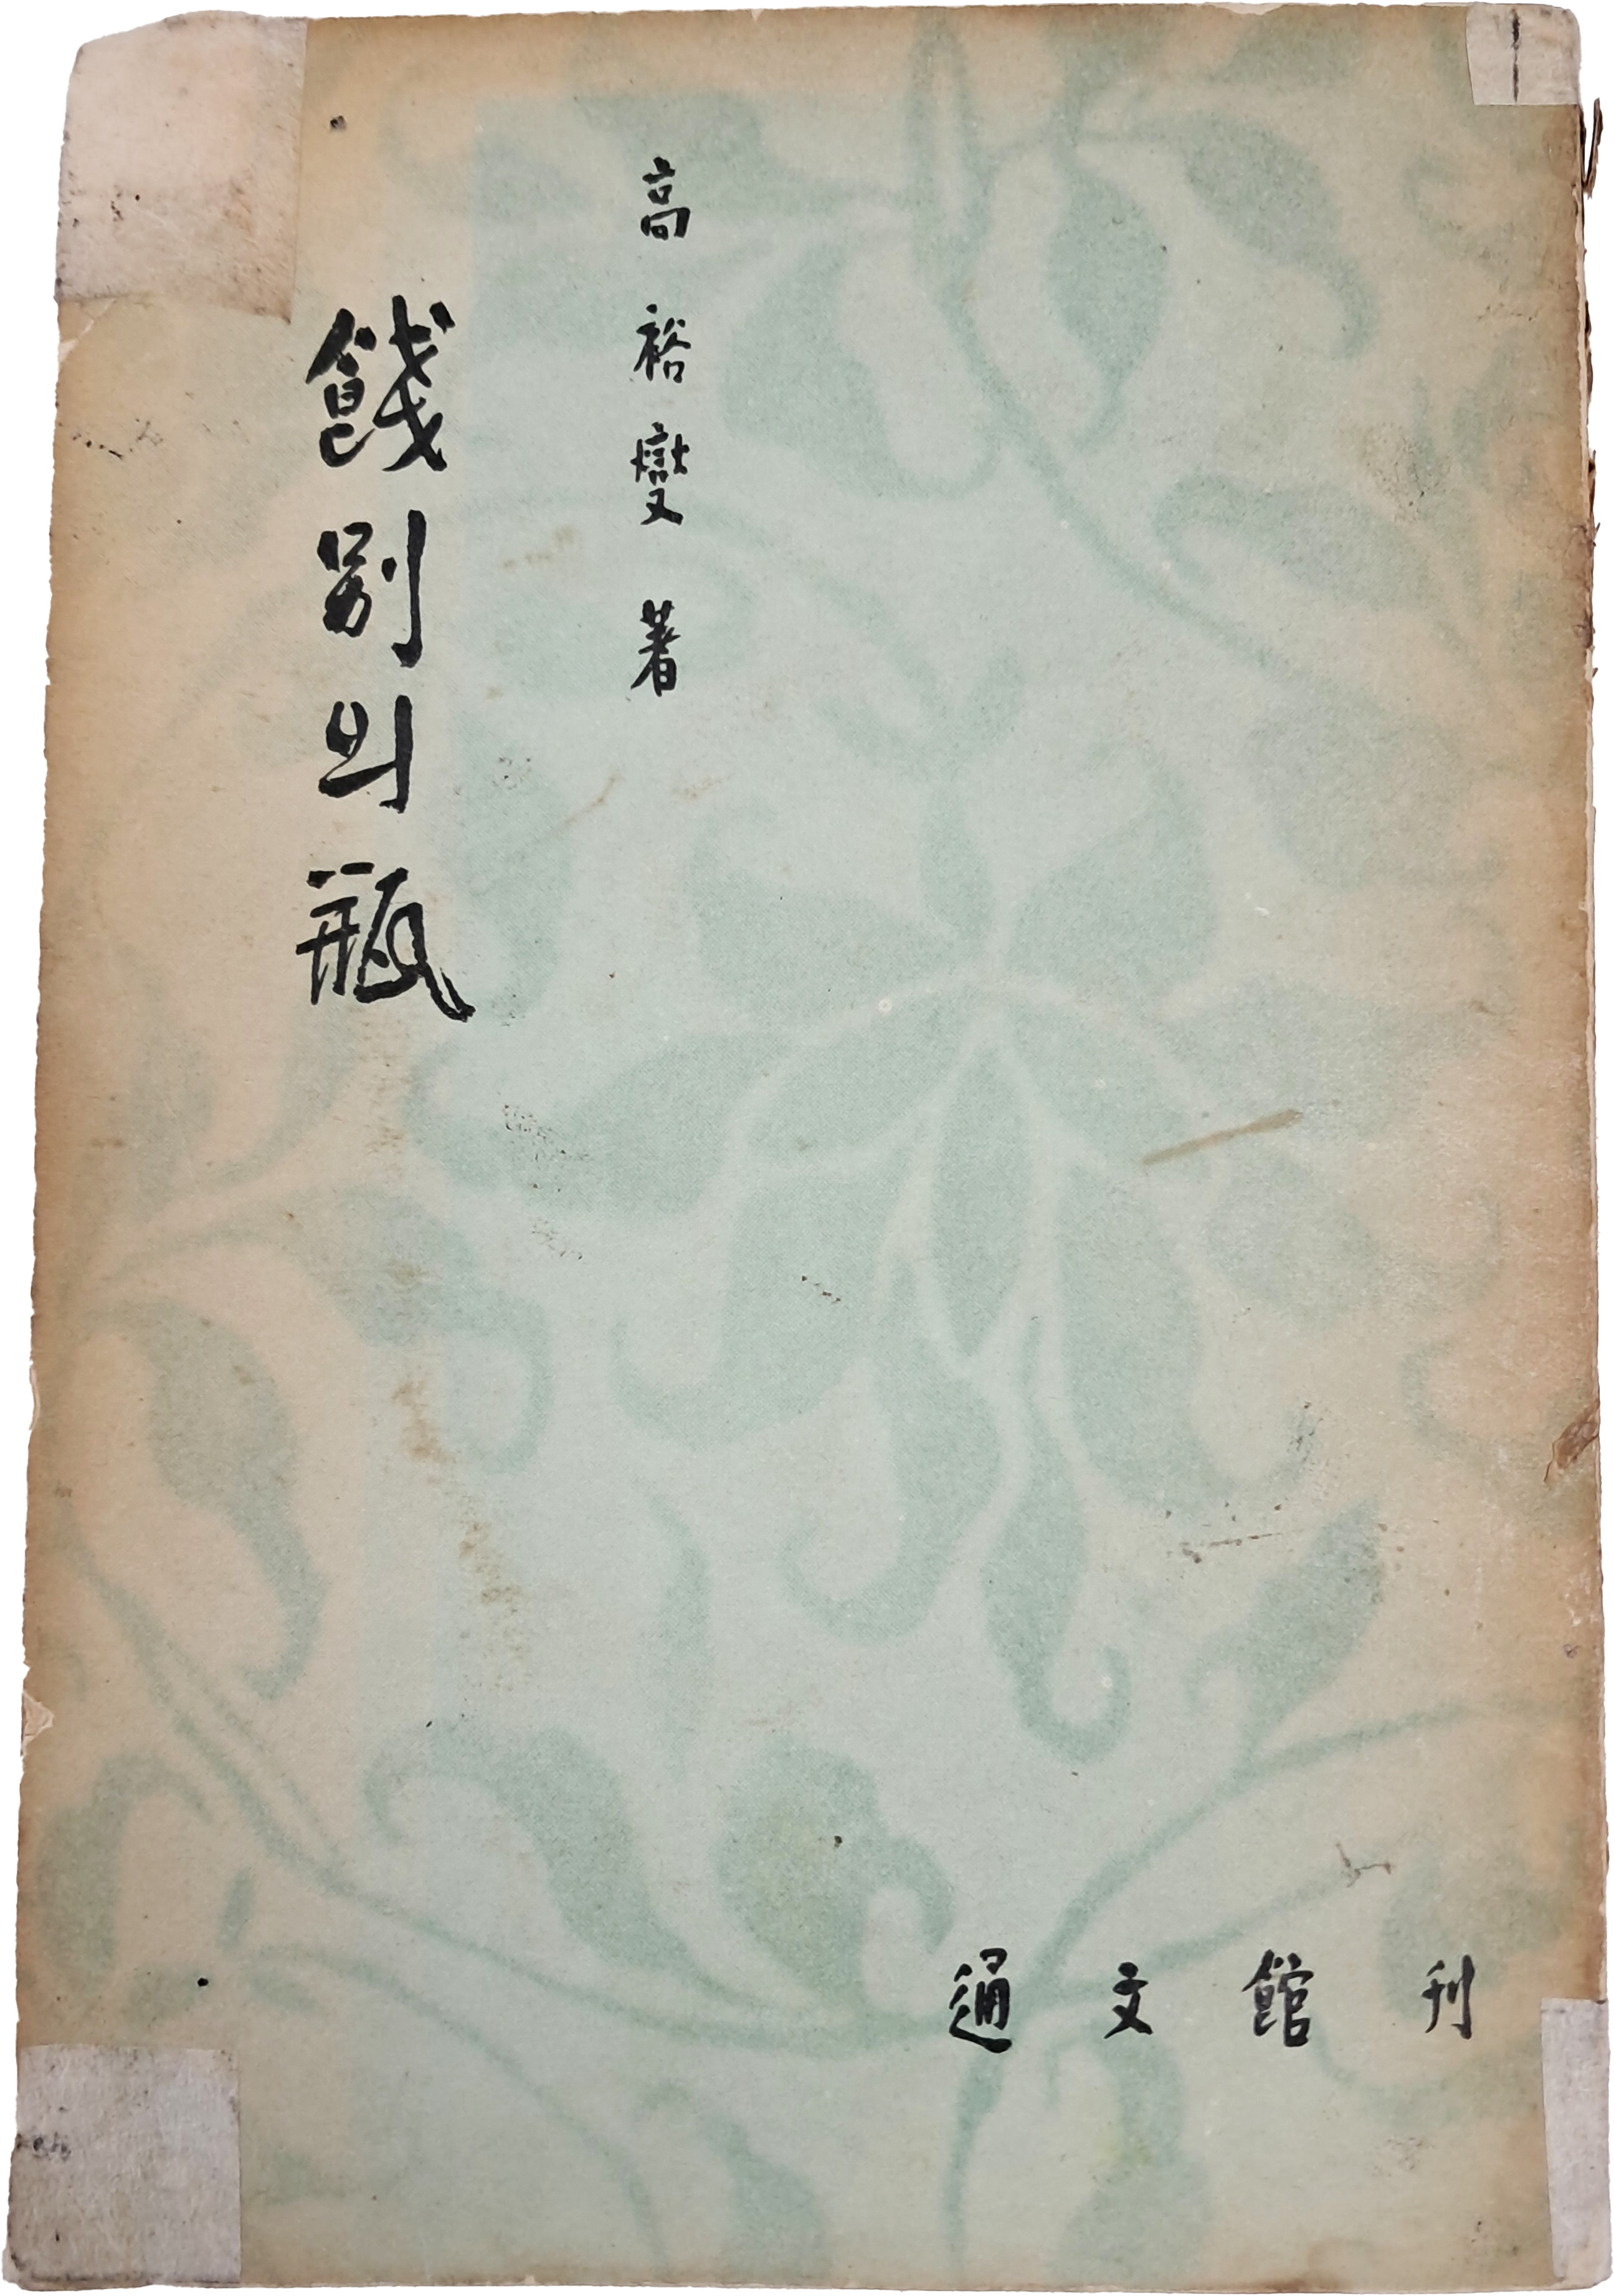 高裕燮 著
餞別의 甁
通文館 刊